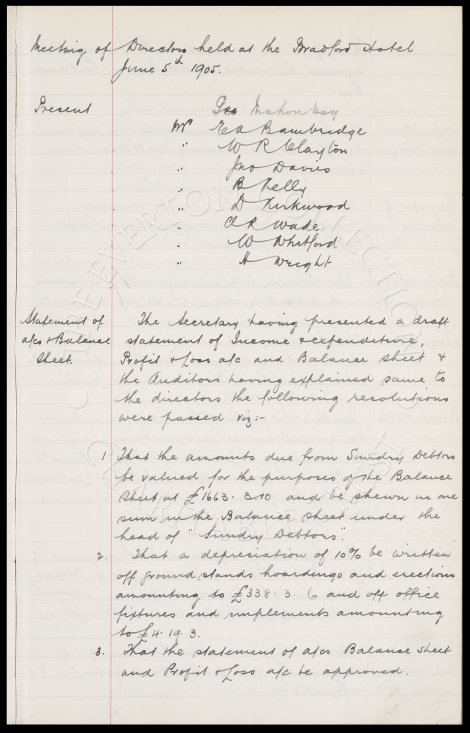 Meeting of Directors held at the Bradford Hotel
June 5th 1905.
Present Geo Mahon Esq
Mr E A Bambridge
" W R Clayton
" Jno Davies
" B Kelly
" D Kirkwood
" A R Wade
" W Whitford
" H Wright
Statement of The Secretary having presented a draft
a/cs & Balance statement of Income & expenditure,
Sheet. Profit & Loss a/c and Balance Sheet &
the Auditors having explained same to
the directors the following resolutions
were passed viz:-
1 That the amounts due from Sundry Debtors
be valued for the purposes of the Balance
Sheet at £1663. 3. 10 and be shewn in one
sum in the Balance sheet under the
head of "Sundry Debtors".
2. That a depreciation of 10% be written
off ground stands hoardings and erections
amounting to £338. 3. 6 and off office
fixtures and implements amounting
to £4. 19. 3.
3. That the statement of a/cs Balance Sheet
and Profit & Loss a/c be approved.
THE EVERTON COLLECTION